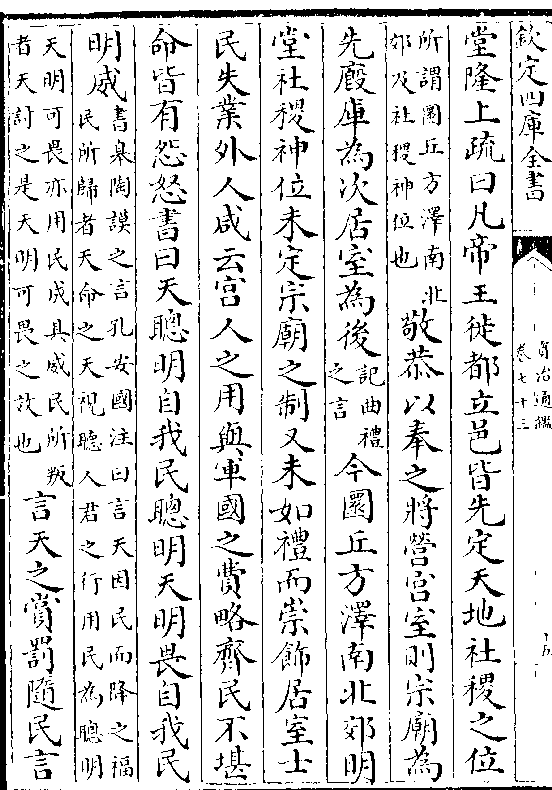 欽定四庫全書
資治通鑑
卷七十三
堂隆上疏曰凡帝王徙都立邑皆先定天地社稷之位
所謂圜丘方澤南北
郊及社稷神位也
敬恭以奉之將營宫室則宗廟為
先廏庫為次居室為後
記曲禮
之言
今圜丘方澤南北郊明
堂社稷神位未定宗廟之制又未如禮而崇飾居室士
民失業外人咸云宫人之用與軍國之費略齊民不堪
命皆有怨怒書曰天聰明自我民聰明天明畏自我民
明威
書臯陶謨之言孔安國注曰言天因民而降之福
民所歸者天命之天視聽人君之行用民為聰明
天明可畏亦用民成其威民所叛
者天討之是天明可畏之效也
言天之賞罰隨民言